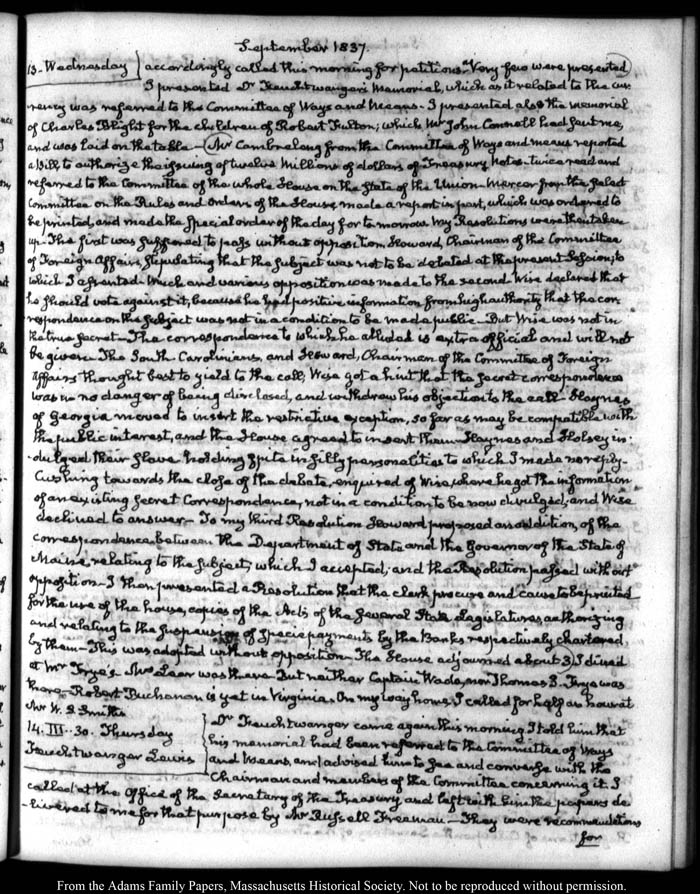 September 1837.
13. Wednesday accordingly called this morning for petitions. Very few were presented
I presented Dr Feuchtwanger's Memorial, which as it related to the cur-
rency was referred to the Committee of Ways and Means. I presented also the memorial
of Charles Blight for the children of Robert Fulton, which Mr John Connell had sent me,
and was laid on the table. Mr Cambreleng from the Committee of Ways and means reported
a Bill, to authorize the issuing of twelve Millions of dollars of Treasury Notes. twice read and
referred to the Committee of the whole House on the State of the Union. Mercer from the select
Committee on the Rules and Orders of the House, made a report in part, which was ordered to
be printed, and made the special order of the day for to-morrow. my Resolutions were then taken
up. The first was suffered to pass without opposition, Howard, Chairman of the Committee
of Foreign Affairs stipulating that the subject was not to be debated at the present Session; to
which I assented. Much and various opposition was made to the second. Wise declared that
he should vote against it, because he had positive information from high authority that the cor-
respondence on the subject was not in a condition to be made public. But Wise was not in
the true secret. The correspondence to which he alluded is extra official and will not
be given. The South-Carolinians, and Howard, Chairman of the Committee of Foreign
Affairs thought best to yield to the call; Wise got a hint that the secret correspondence
was in no danger of being disclosed, and withdrew his objection to the call. Haynes
of Georgia moved to insert the restrictive exception, so far as may be compatible with
the public interest, and the House agreed to insert them. Haynes and Holsey in-
dulged their slave holding spite in silly personalities to which I made no reply.
Cushing towards the close of the debate, enquired of Wise, where he got the information
of an existing secret Correspondence, not in a condition to be now divulged; and Wise
declined to answer. To my third Resolution Howard proposed an addition, of the
correspondence between the Department of State and the Governor of the State of
Maine, relating to the subject, which I accepted; and the Resolution passed without
opposition. I then presented a Resolution that the clerk procure and cause to be printed
for the use of the house, copies of the Acts of the several State Legislatures, authorizing
and relating to the suspension of specie payments by the Banks respectively chartered
by them. This was adopted without opposition. The House adjourned about 3. I dined
at Mr Frye's. Mrs Lear was there. But neither Captain Wade, nor Thomas B. Frye was
there. Robert Buchanan is yet in Virginia. On my way home, I called for half an hour at
Mr W. S. Smith's
14. III..30. Thursday Dr Feuchtwanger came again this morning. I told him that
his memorial had been referred to the Committee of Ways
Feuchtwanger Lewis and Means, and advised him to see and converse with the
Chairman and members of the Committee concerning it. I
called at the Office of the Secretary of the Treasury and left with him the papers de-
livered to me for that purpose by Mr Russell Freeman. They were recommendations
for
From the Adams Family Papers, Massachusetts Historical Society. Not to be reproduced without permission.